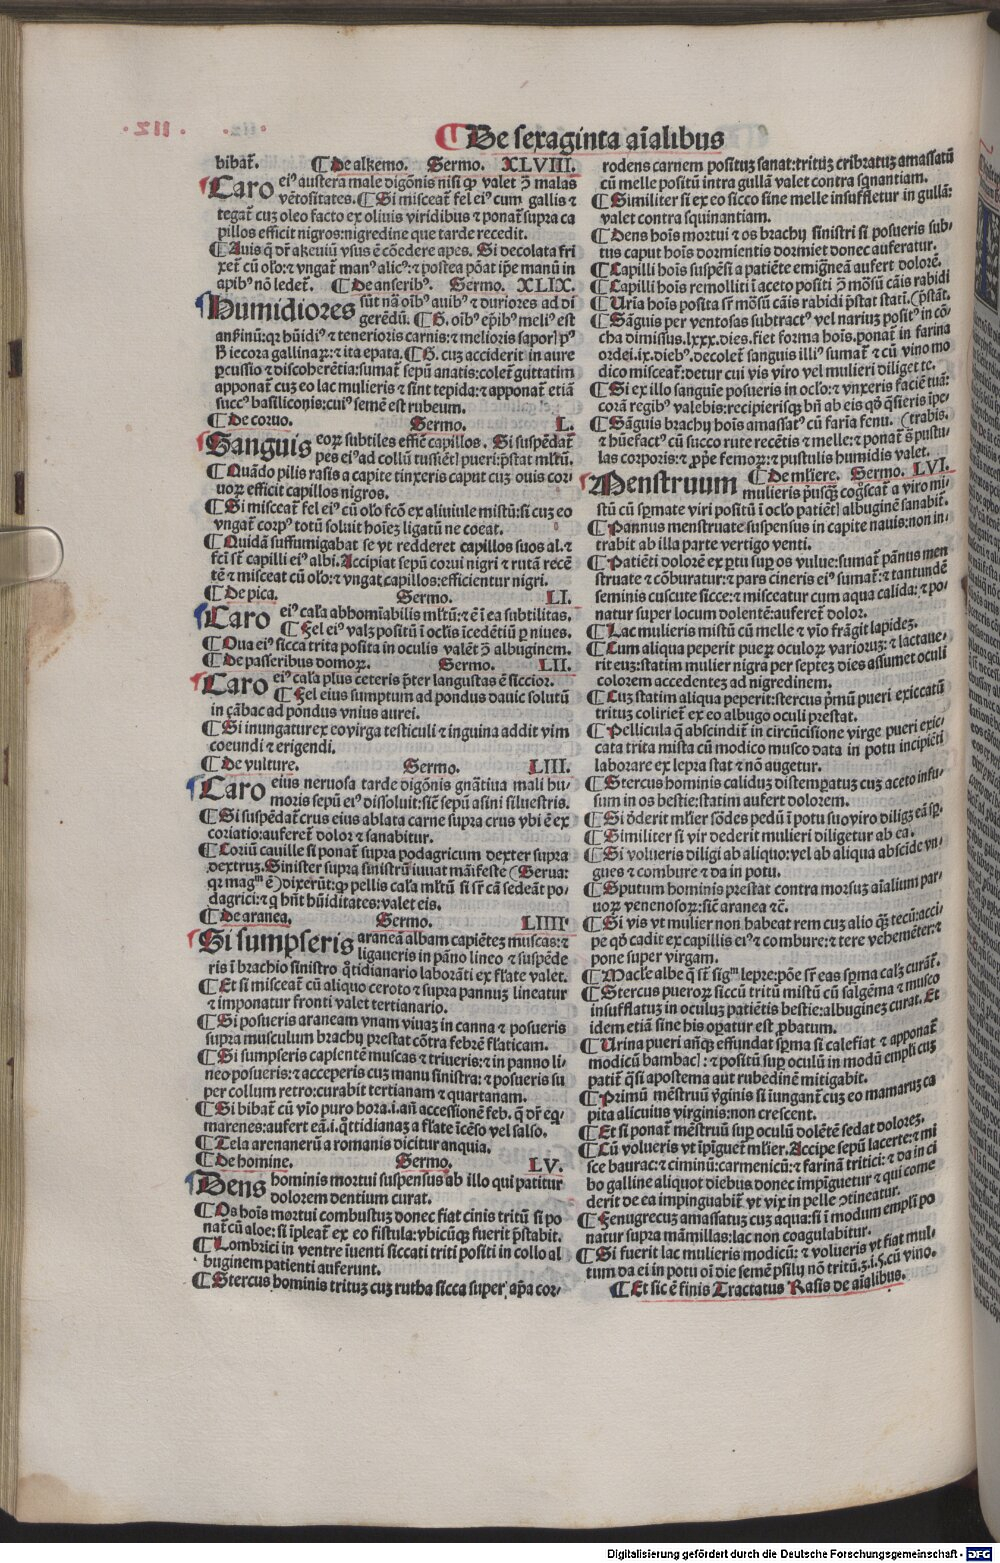 De sexaginta aīalibus
bibat̄. ¶ De alkemo. Sermo. XLVIII.
Caro ei⁹ austera male digōnis nisi ꝙ valet ꝯ̄ malas
vētositates. ¶ Si misceat̄ fel ei⁹ cum gallis ⁊
tegat̄ cuꝫ oleo facto ex oliuis viridibus ⁊ ponat̄ supra ca
pillos efficit nigros: nigredine que tarde recedit.
¶ Auis q̄ dr̄ akeniū vsus ē cōedere apes. Si decolata fri
xet̄ cū olō: ⁊ vngat̄ man⁹ alic⁹: ⁊ postea pōat ip̄e manū in
apib⁹ nō ledet̄. ¶ De anserib⁹. Sermo. XLIX.
Humidiores sūt nā oīb⁹ auib⁹ ⁊ duriores ad di
gerēdū. ¶ G. oīb⁹ ep̄ib⁹ meli⁹ est
B iecora gallinaꝝ: ⁊ ita epata. ¶ G. cuꝫ acciderit in aure
ꝑcussio ⁊ discoherētia: sumat̄ sepū anatis: colet̄ guttatim
apponat̄ cuꝫ eo lac mulieris ⁊ sint tepida: ⁊ apponat̄ etiā
succ⁹ basiliconis: cui⁹ semē est rubeum.
¶ De coruo. Sermo. L.
Sanguis eoꝝ subtiles effiē capillos. Si suspēdat̄
pes ei⁹ ad collū tussiēt] pueri: p̄stat ml̄tū.
¶ Quādo pilis rasis a capite tinxeris caput cuꝫ ouis cor
uoꝝ efficit capillos nigros.
¶ Si misceat̄ fel ei⁹ cū olō fcō ex aliuiule mistū: si cuꝫ eo
vngat̄ corp⁹ totū soluit hoīeꝫ ligatū ne coeat.
¶ Quidā suffumigabat se vt redderet capillos suos al. ⁊
fc̄i st̄ capilli ei⁹ albi. Accipiat sepū corui nigri ⁊ rutā recē
tē ⁊ misceat cū olō: ⁊ vngat capillos: efficientur nigri.
¶ De pica. Sermo. LI.
Caro ei⁹ cal̄a abhomīabilis ml̄tū: ⁊ ē ī ea subtilitas.
¶ Fel ei⁹ valꝫ positū ī ocl̄is īcedētiū ꝑ niues.
¶ Oua ei⁹ sicca trita posita in oculis valēt ꝯ̄ albuginem.
¶ De passeribus domoꝝ. Sermo. LII.
Caro ei⁹ cal̄a plus ceteris p̄ter langustas ē siccior.
¶ Fel eius sumptum ad pondus dauic solutū
in cābac ad pondus vnius aurei.
¶ Si inungatur ex eo virga testiculi ⁊ inguina addit vim
coeundi ⁊ erigendi.
¶ De vulture. Sermo. LIII.
Caro eius neruosa tarde digōnis gnātiua mali hu-
moris sepū ei⁹ dissoluit: sic̄ sepū asini siluestris.
¶ Si suspēdat̄ crus eius ablata carne supra crus vbi ē ex
coriatio: auferet̄ dolor ⁊ sanabitur.
¶ Coriū cauille si ponat̄ supra podagricum dexter supra
dextruꝫ. Sinister supra sinistrū iuuat māifeste (Serua:
qr mag̅ᵐ ē) dixerūt: ꝙ pellis cal̄a ml̄tū si sr̄ cā sedeāt po-
dagrici: ⁊ q̄ hn̄t hūiditates: valet eis.
¶ De aranea. Sermo. LIIII
Si sumpseris araneā albam capiēteꝫ muscas: ⁊
ligaueris in pāno lineo ⁊ suspēde
ris ī brachio sinistro q̄tidianario laborāti ex fl̄ate valet.
¶ Et si misceat̄ cū aliquo ceroto ⁊ supra pannuꝫ lineatur
⁊ imponatur fronti valet tertianario.
¶ Si posueris araneam vnam viuaꝫ in canna ⁊ posueris
supra musculum brachij prestat cōtra febrē fl̄aticam.
¶ Si sumpseris capientē muscas ⁊ triueris: ⁊ in panno li-
neo posueris: ⁊ acceperis cuꝫ manu sinistra: ⁊ posueris su
per collum retro: curabit tertianam ⁊ quartanam.
¶ Si bibat̄ cū vīo puro hora. i. añ accessionē feb. q̄ dr̄ eq̄-
marenes: aufert eā. i. q̄ttidianaꝫ a fl̄ate īcēso vel salso.
¶ Tela arenanerū a romanis dicitur anquia.
¶ De homine. Sermo. LV.
Dens hominis mortui suspensus ab illo qui patitur
dolorem dentium curat.
¶ Os hoīs mortui combustuꝫ donec fiat cinis tritū si po
nat̄ cū aloe: si īpleat̄ ex eo fistula: vbicūqꝫ fuerit p̄stabit.
¶ Lombrici in ventre īuenti siccati triti positi in collo al
buginem patienti auferunt.
¶ Stercus hominis trituꝫ cuꝫ rutha sicca super apa cor-
rodens carnem posituꝫ sanat: trituꝫ cribratuꝫ amassatū
cū melle positū intra gullā valet contra sqnantiam.
¶ Similiter si ex eo sicco sine melle insuffletur in gullā:
valet contra squinantiam.
¶ Dens hoīs mortui ⁊ os brachij sinistri si posueris sub-
tus caput hoīs dormientis dormiet donec auferatur.
¶ Capilli hoīs suspēsi a patiēte emigr̄eā aufert dolorē.
¶ Capilli hoīs remolliti ī aceto positi ꝯ̄ mōsū cāis rabidi
¶ Uria hoīs posita sr̄ mōsū cāis rabidi p̄stat stati. (p̄stāt.
¶ Sāguis per ventosas subtract⁹ vel nariuꝫ posit⁹ in cō
cha dimissus. lxxx. dies. fiet forma hoīs. ponat̄ in farina
ordei. ix. dieb⁹. decolet̄ sanguis illi⁹ sumat̄ ⁊ cū vino mo
dico misceat̄: detur cui vis viro vel mulieri diliget te.
¶ Si ex illo sanguīe posueris in oclō: ⁊ vnxeris faciē tuā:
corā regib⁹ valebis: recipierisqꝫ bn̄ ab eis qd̄ q̄sieris īpe
¶ Sāguis brachij hoīs amassat⁹ cū faria fenu. (trabis.
⁊ hūefact⁹ cū succo rute recētis ⁊ melle: ⁊ ponat̄ s̄ pustu-
las corporis: ⁊ ꝓp̄e femoꝝ: ⁊ pustulis humidis valet.
¶ De ml̄iere. Sermo. LVI.
Menstruum mulieris p̄usqꝫ cog̊scat̄ a viro mi-
stū cū spermate viri positū ī oclō patiēt] albuginē sanabit̄.
¶ Pannus menstruate suspensus in capite nauis: non in-
trabit ab illa parte vertigo venti.
¶ Patiēti dolorē ex ptu suꝑ os vulue: sumat̄ pānus men
struate ⁊ cōburatur: ⁊ pars cineris ei⁹ sumat̄: ⁊ tantundē
seminis cuscute sicce: ⁊ misceatur cum aqua calida: ⁊ po-
natur super locum dolentē: auferet̄ dolor.
¶ Lac mulieris mistū cū melle ⁊ vīo frāgit lapideꝫ.
¶ Cum aliqua peperit pueꝝ oculoꝝ varioruꝫ: ⁊ lactaue-
rit euꝫ: statim mulier nigra per septeꝫ dies assumet oculi
colorem accedenteꝫ ad nigredinem.
¶ Cuꝫ statim aliqua peperit: stercus p̄mū pueri exiccatū
trituꝫ coliriet̄ ex eo albugo oculi prestat.
¶ Pellicula q̄ abscindit̄ in circūcisione virge pueri exic-
cata trita mista cū modico musco data in potu incipiēti
laborare ex lepra stat ⁊ nō augetur.
¶ Stercus hominis caliduꝫ distemꝑatuꝫ cuꝫ aceto infu-
sum in os bestie: statim aufert dolorem.
¶ Si ꝺ̄derit ml̄ier sōdes pedū ī potu suo viro diligꝫ eā sꝑ.
¶ Similiter si vir dederit mulieri diligetur ab ea.
¶ Si volueris diligi ab aliquo: vel ab aliqua abscide vn-
gues ⁊ combure ⁊ da in potu.
¶ Sputum hominis prestat contra morsuꝫ aīalium par-
uoꝝ venenosoꝝ: sic̄ aranea ⁊c̄.
¶ Si vis vt mulier non habeat rem cuꝫ alio q̄ꝫ tecū: acci-
pe qd̄ cadit ex capillis ei⁹ ⁊ combure: ⁊ tere vehemēter: ⁊
pone super virgam.
¶ Macl̄e albe q̄ sr̄ sig̅ᵐ lepre: pōe sr̄ eas sp̄ma calꝫ curat̄.
¶ Stercus pueroꝝ siccū tritū mistū cū salgēma ⁊ musco
insufflatuꝫ in oculuꝫ patiētis bestie: albugineꝫ curat. Et
idem etiā sine his oꝑatur est ꝓbatum.
¶ Urina pueri añqꝫ effundat sp̄ma si calefiat ⁊ apponat̄
modicū bambac]: ⁊ positū suꝑ oculū in modū emplī cuꝫ
patit̄ q̄si apostema aut rubedinē mitigabit.
¶ Primū mēstruū v̄ginis si iungant̄ cuꝫ eo mamaruꝫ ca
pita alicuius virginis: non crescent.
¶ Et si ponat̄ mēstruū suꝑ oculū dolētē sedat doloreꝫ.
¶ Cū volueris vt īpīguet̄ ml̄ier. Accipe sepū lacerte: ⁊ mi
sce baurac: ⁊ ciminū: carmenicū: ⁊ farinā tritici: ⁊ da in ci
bo galline aliquot diebus donec impīguetur ⁊ qui come
derit de ea impinguabit̄ vt vix in pelle ꝯtineatur.
¶ Fenugrecuꝫ amassatuꝫ cuꝫ aqua: si ī modum emplī po
natur supra māmillas: lac non coagulabitur.
¶ Si fuerit lac mulieris modicū: ⁊ volueris vt fiat mul-
tum da ei in potu oī die semē psilij nō tritū. ʒ. i. s. cū vino.
¶ Et sic ē finis Tractatus Rasis de aīalibus.
Digitalisierung gefördert durch die Deutsche Forschungsgemeinschaft - DFG